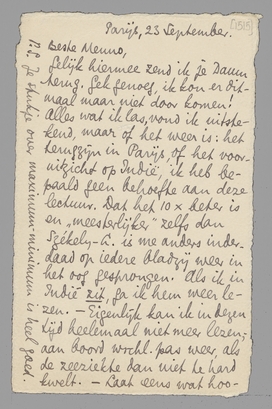 [1515]
Parijs, 23 September.
Beste Menno,
Gelijk hiermee zend ik je Daum
terug. Gek genoeg, ik kon er dit-
maal maar niet door komen!
Alles wat ik las, vond ik uitste-
kend, maar of het weer is: het
terugzijn in Parijs, of het voor-
uitzicht op Indië, ik heb be-
paald geen behoefte aan deze
lectuur. Dat het 10 x beter is
en „meesterlijker” zelfs dan
Székely-L. is me anders inder-
daad op iedere bladzij weer in
het oog gesprongen. Als ik in
Indië zit, ga ik hem weer le-
zen. — Eigenlijk kan ik in dezen
tijd heelemaal niet meer lezen;
aan boord wschl. pas weer, als
de zeeziekte dan niet te hard
kwelt. — Laat eens wat hoo-
P.S. Je stukje over maximum-minimum is heel goed.